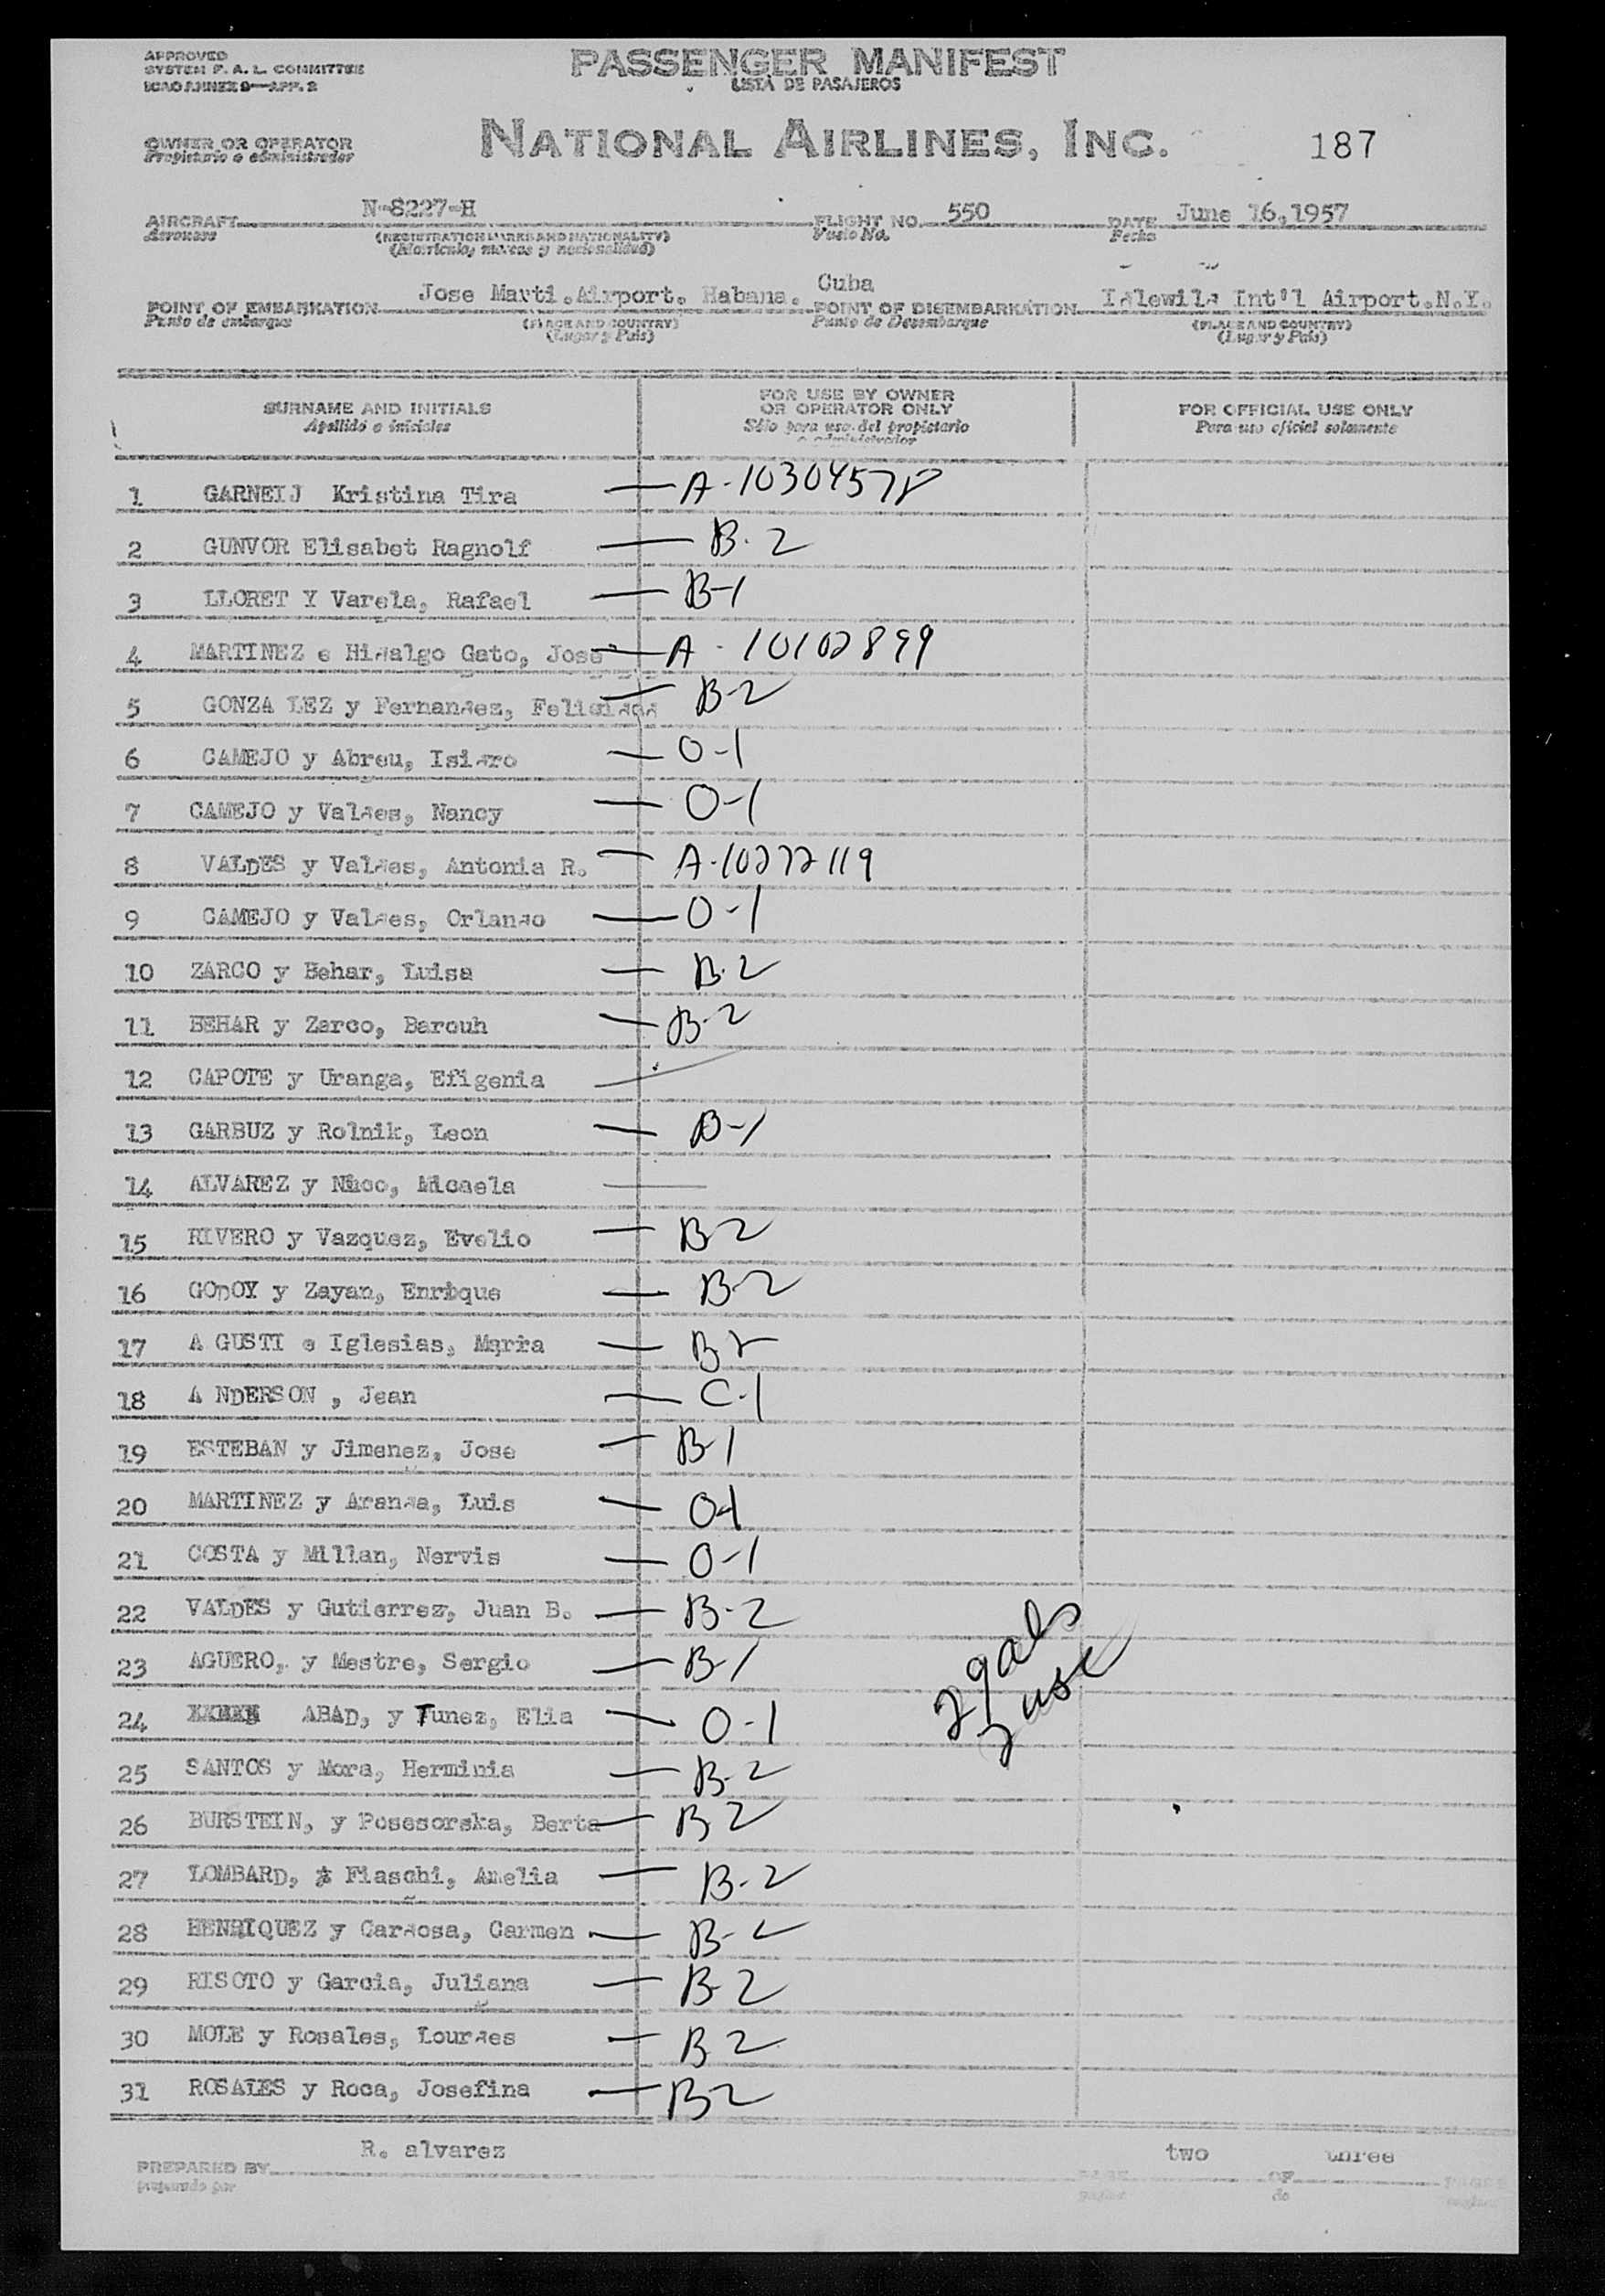 APPROVED
SYSTEM F. A. L. COMMITTEE
ICAO ANNEX 9—APP. 2
PASSENGER MANIFEST
LISTA DE PASAJEROS
OWNER OR OPERATOR
Propietario o administrador
NATIONAL AIRLINES, INC.
187
AIRCRAFT N-8227-H FLIGHT NO. 550 DATE June 16,1957
Aeronave (REGISTRATION MARKS AND NATIONALITY) Vuelo No. Fecha
(Matricula, marcas y nacionalidad)
POINT OF EMBARKATION Jose Marti.Airport. Habana. Cuba POINT OF DISEMBARKATION Idlewild Int'l Airport.N.Y.
Punto de embarque (PLACE AND COUNTRY) Punto de Desembarque (PLACE AND COUNTRY)
(Lugar y Pais) (Lugar y Pais)
SURNAME AND INITIALS
Apellido e iniciales
FOR USE BY OWNER
OR OPERATOR ONLY
Sólo para uso del propietario
o administrador
FOR OFFICIAL USE ONLY
Para uso oficial solamente
1 GARNEIJ Kristina Tira — A-10304578
2 GUNVOR Elisabet Ragnolf — B-2
3 LLORET Y Varela, Rafael — B-1
4 MARTINEZ e Hidalgo Gato, Jose — A-10102899
5 GONZA LEZ y Fernandez, Feliciana — B-2
6 CAMEJO y Abreu, Isidro — O-1
7 CAMEJO y Valdes, Nancy — O-1
8 VALDES y Valdes, Antonia R. — A-10272119
9 CAMEJO y Valdes, Orlando — O-1
10 ZARCO y Behar, Luisa — B-2
11 BEHAR y Zarco, Barouh — B-2
12 CAPOTE y Uranga, Efigenia —
13 GARBUZ y Rolnik, Leon — B-1
14 ALVAREZ y Nuco, Micaela —
15 RIVERO y Vazquez, Evelio — B-2
16 GODOY y Zayan, Enrique — B-2
17 A GUSTI e Iglesias, Maria — B-2
18 A NDERSON , Jean — C-1
19 ESTEBAN y Jimenez, Jose — B-1
20 MARTINEZ y Aranda, Luis — O-1
21 COSTA y Millan, Nervis — O-1
22 VALDES y Gutierrez, Juan B. — B-2
23 AGUERO, y Mestre, Sergio — B-1
24 ABAD, y Tunez, Elia — O-1
25 SANTOS y Mora, Herminia — B-2
26 BURSTEIN, y Posesorska, Berta — B-2
27 LOMBARD, y Fiaschi, Amelia — B-2
28 HENRIQUEZ y Cardosa, Carmen — B-2
29 RISOTO y Garcia, Juliana — B-2
30 MOLE y Rosales, Lourdes — B-2
31 ROSALES y Roca, Josefina — B-2
29 als
2 usc
PREPARED BY R. alvarez PAGE two OF three PAGES
preparado por página de